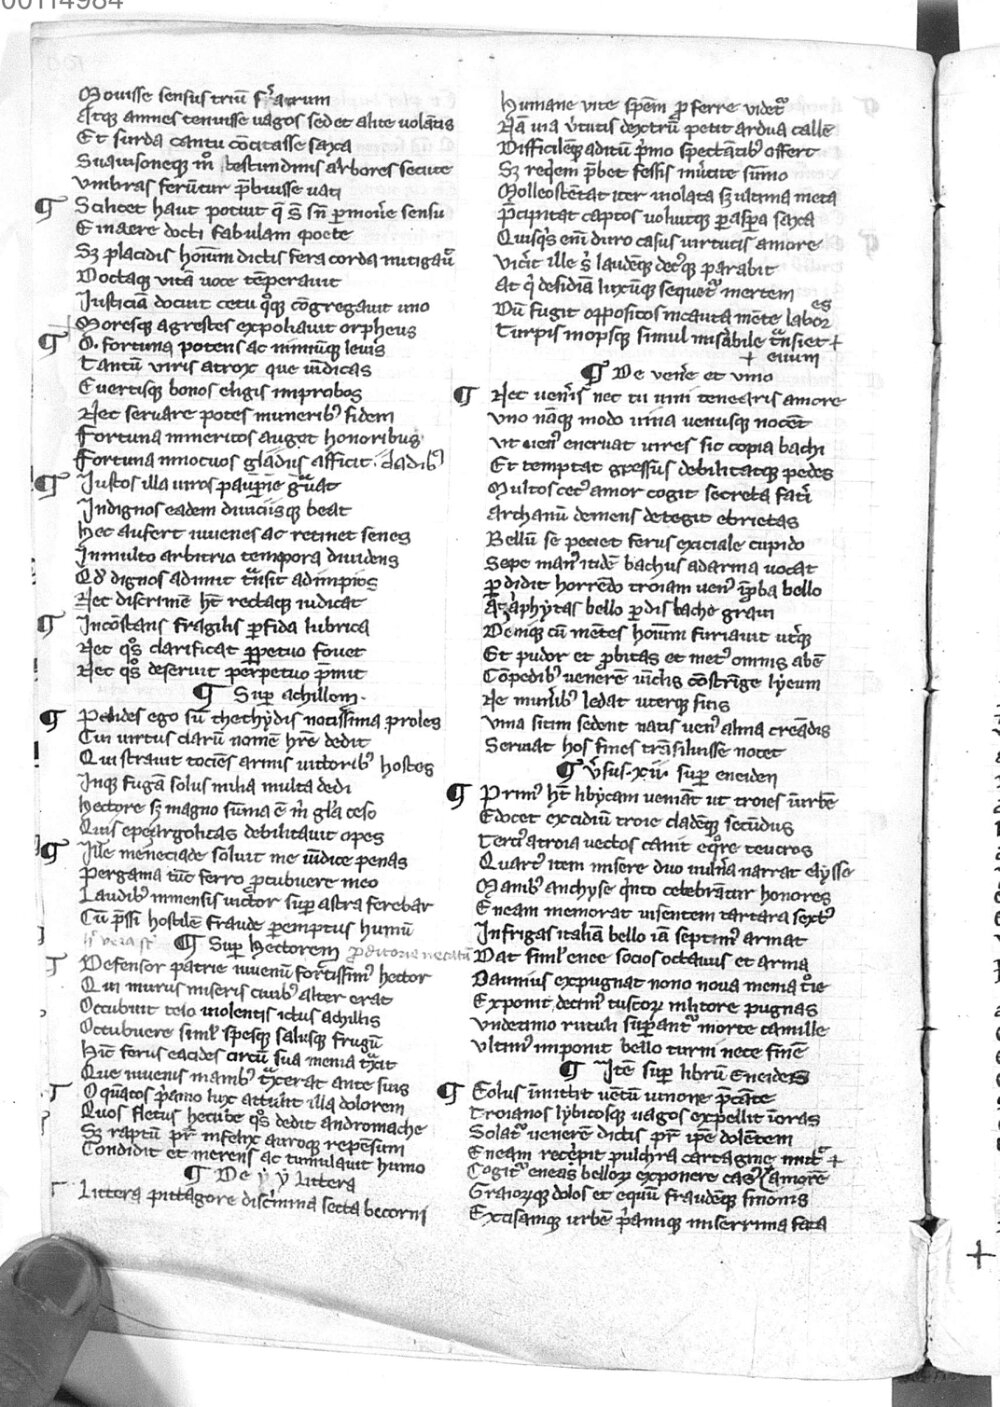 00114984
Mouisse sensus triũ feratrum
Atq̃ amnes tenuisse uagos sed et alite uolãtis
Et surda cantu cõcitasse saxa
Suauisoneq̃ mͦ testundinis arbores secute
Vmbras ferũtur p̃buisse uati
¶ Scilicet haut potuit q̃ s̃ sñ p̱mouẽ sensu
Finxere docti fabulam poete
Sz placidis hoĩum dictis fera corda mitigaũ
Doctaq̃ uitã uoce tẽperauit
Justiciã docuit cetu q̊q̃ cõgregauit uno
Moresq̃ agrestes expoliauit orpheus
¶ O. fortuna potens ac nimiũq̃ leuis
Tantũ viris atrox que uĩdicas
Euertisq̃ bonos eligis improbos
Nec seruare potes munerib⁹ fidem
Fortuna inmeritos auget honoribus
Fortuna innocuos gladius afficit cladib⁹
¶ Justos illa uiros paup̃rie g̃uat
Indignos eadem diuiciisq̃ beat
Hec aufert iuuenes ac retinet senes
Inmulto arbitrio tempora diuidens
Qd̃ dignos adimit t̃nsit ad impios
Nec discrimẽ ht̃ rectaq̃ iudicat
¶ Incõstans fragilis p̱fida lubrica
Nec q̊s clarificat p̱petuo fouet
Nec q̊s deseruit perpetuo p̃mit
¶ Sup̱ achillem.
¶ Pelides ego sũ thethydis notissima proles
Cui uirtus clarũ nomẽ hr̃e dedit
Qui straui tociẽs armis uictorib⁹ hostes
Inq̃ fugã solus milia multa dedi
Hectore sz magno sũma ẽ m̃ gl̃a ceso
Qui sepe argolicas debilitauit opes
¶ Ille meneciade soluit me uĩdice penas
Pergama tũc ferro p̱cubuere meo
Laudib⁹ inmensis uictor sup̱ astra ferebar
Cũ p̃ssi hostilẽ fraude p̱emptus humũ
¶ Sup̱ Hectorem proditorie necatũ
Defensor patrie iuuenũ fortissim⁹ hector
Qui murus miseris ciuib⁹ alter erat
Occubuit telo uiolentis ictus achillis
Occubuere simĺ spesq̃ salusq̃ frugũ
Hũc ferus eacides circũ sua menia t̃xit
Que iuuenis manib⁹ t̃xerat ante suis
O quãtos p̃amo lux attulit illa dolorem
Quos fletus hecube q̊s dedit andromache
Sz raptũ pr̃ infelix auroq̃ repẽsum
Condidit et merens ac tumulauit humo
¶ De ẏ ẏ littera
Littera pittagore disc̃imina secta becorni
Humane vite spẽm p̱ferre videt̃
Nã uia v̾tutis dextrũ petit ardua callẽ
Difficilẽq̃ aditũ p̃mo spectãtib⁹ offert
Sz reqẽm p̃bet fessis in v̾tice sũmo
Molle ostẽtat iter uiolata sz ultima meta
P̃cipitat captos uoluitq̃ p̱ asp̱a saxa
Quisq̃s em̃ duro casus uirtutis amore
Vic̾it ille s̾ laudẽq̃ dec⁹q̃ parabit
At q̃ desidiã luxũq̃ sequet̃ inertem
Dũ fugit oppositos incauta mẽte labores
Turpis inopsq̃ simul mis̾abile t̃nsiet +
+ euum
¶ De ven̾e et vino
¶ Nec ven̾is nec tu vini tenearis amore
Vno nãq̃ modo uina uenusq̃ nocẽt
Vt uen⁹ eneruat vires sic copia bachi
Et temptat gressus debilitatq̃ pedes
Multos cec⁹ amor cogit secreta fat̾i
Archanũ demens detegit ebrietas
Bellũ sepe petiet ferus exiciale cupido
Sepe man⁹ itidẽ bachus ad arma uocat
P̱didit horrẽdo troiam uen⁹ ĩp̱ba bello
At laphytas bello p̱dis bache graui
Deniq̃ cũ mẽtes hoĩum furiauit ut̾q̃
Et pudor et p̱bitas et met⁹ omnis abẽ
Cõpedib⁹ uenerẽ uĩclis cõstrĩge lyeum
Ne mun̾ib⁹ ledat uterq̃ suis
Vina sitim sedent natis uen⁹ alma creãdis
Seruat hos fines trãsiluisse nocet
¶ V̾sus .xii. sup̱ eneiden
¶ Prim⁹ ht̃ libycam ueniãt ut troies ĩ urbẽ
Edocet excidiũ troie cladẽq̃ secũdus
Terci⁹ a troia uectos canit eq̊re teucros
Quart⁹ item misere duo uuln̾a narrat elysse
Manib⁹ anchyse q̃nto celebrãtur honores
Eneam memorat uisentem tartara sext⁹
In frigas italiã bello iã septim⁹ armat
Dat simĺ enee socios octauus et arma
Daunius expugnat nono noua menia t̊ie
Exponit decim⁹ tuscoꝝ in litore pugnas
Vndecimo rutuli sup̱ant̃ morte camille
Vltim⁹ imponit bello turni nece finẽ
¶ Itẽ sup̱ librũ Eneidos
¶ Eolus ĩmittit uẽtũ iunone p̃cãte
Troianos lybicosq̃ uagos expellit ĩ oras
Solat̃ uenerẽ dictis pr̃ ip̃e dolẽtem
Eneam recepit pulchra cartagine mit̃ +
Cogit̃ eneas belloꝝ exponere cas⁹ (amorẽ
Graioꝝq̃ dolos et equũ fraudẽq̃ sinonis
Excisamq̃ urbẽ p̃amiq̃ miserrima fata
+